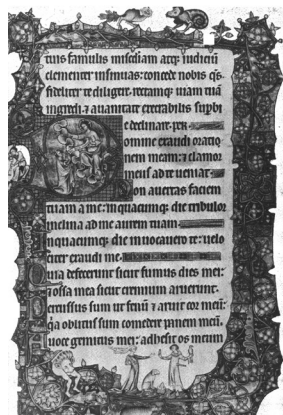 tuis famulis misciliam atq; iudiciū
clementer insinuas: concede nobis q̄s.
fideliter te diligere. rectamq; uiam tuā
ingredi. ⁊ a uanitate execrabilis superbi
e declinare. per.
omine exaudi oratio
nem meam: ⁊ clamor
meus ad te ueniat.
on auertas faciem
tuam a me: in quacumq; die tribulor
inclina ad me aurem tuam.
n quacumq; die inuocauero te: uelo
citer exaudi me.
uia defecerunt sicut fumus dies mei:
⁊ ossa mea sicut cremium aruerunt.
ercussus sum ut fenū ⁊ aruit cor meū:
q̄a oblitus sum comedere panem meū.
uoce gemitus mei: adhesit os meum